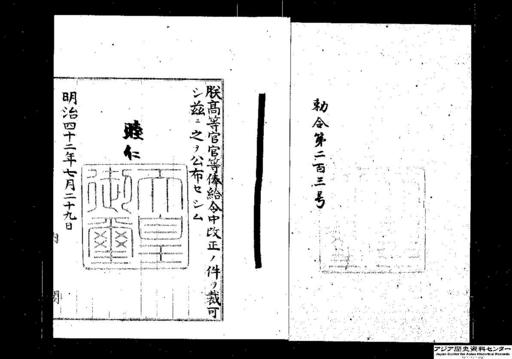 勅令第二百三号
朕高等官官等俸給令中改正ノ件ヲ裁可
シ茲ニ之ヲ公布セシム
睦仁
天皇
御璽
明治四十二年七月二十九日
内閣
アジア歴史資料センター
Japan Center for Asian Historical Records